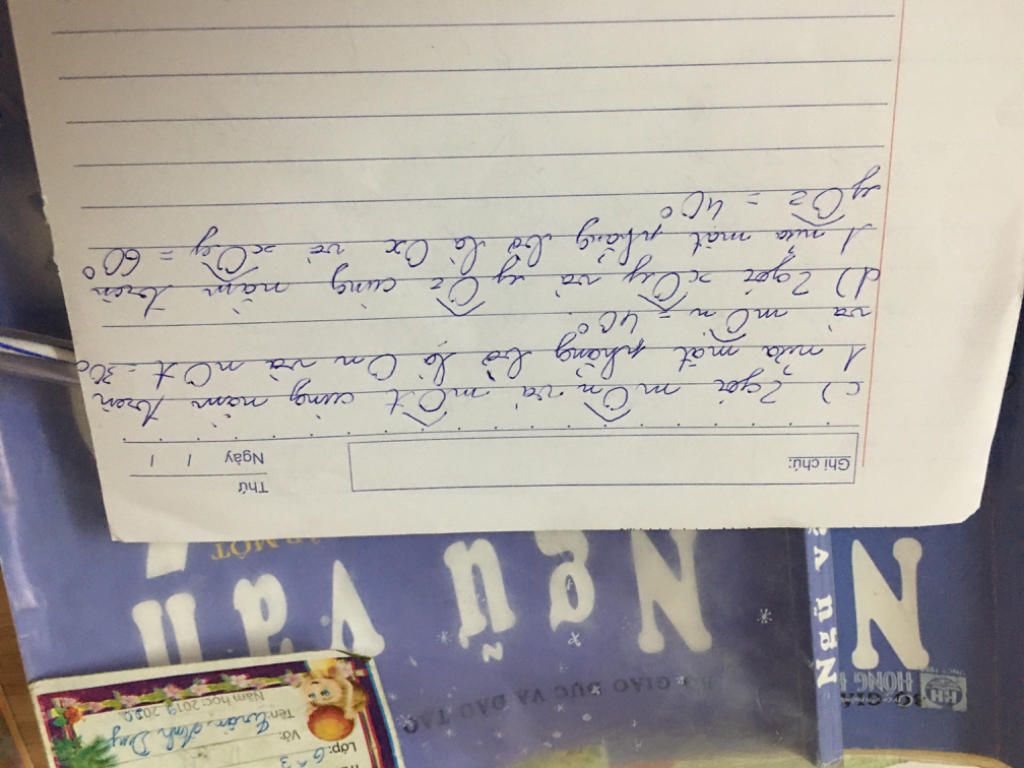 Thứ
Ngày / /
Ghi chú:
c) 2 góc mOn và mOt cùng nằm trên
1 nửa mặt phẳng bờ là Om và nOt = 30°
và mOn = 40°
d) 2 góc xOy và yOz cùng nằm trên
1 nửa mặt phẳng bờ là Ox vẽ xOy = 60°
yOz = 40°
BỘ GIÁO DỤC VÀ ĐÀO TẠO
Ngữ văn
TẬP MỘT
NGỮ VĂN
N
HONG
Lớp: 6A3
Vở:
Tên: Trần Anh Duy
Năm học 2019 2020